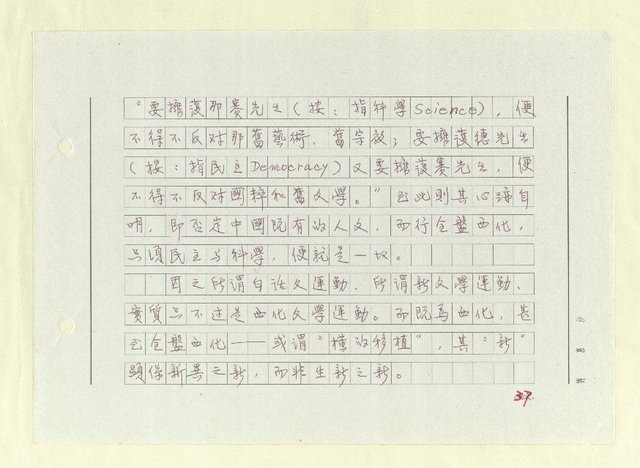 “要擁護那賽先生(按：指科學Science)，便
不得不反对那舊藝術、舊宗教；要擁護德先生
(按：指民主Democracy)又要擁護賽先生，便
不得不反对國粹和舊文學。”至此則其心跡自
明，即否定中國既有的人文，而行全盤西化，
只須民主与科學，便就是一切。
因之所謂白话文運動、所謂新文學運動、
實質只不过是西化文學運動。而既為西化，甚
至全盤西化——或謂“橫的移植”，其“新”
顯係新異之新，而非生新之新。
37.